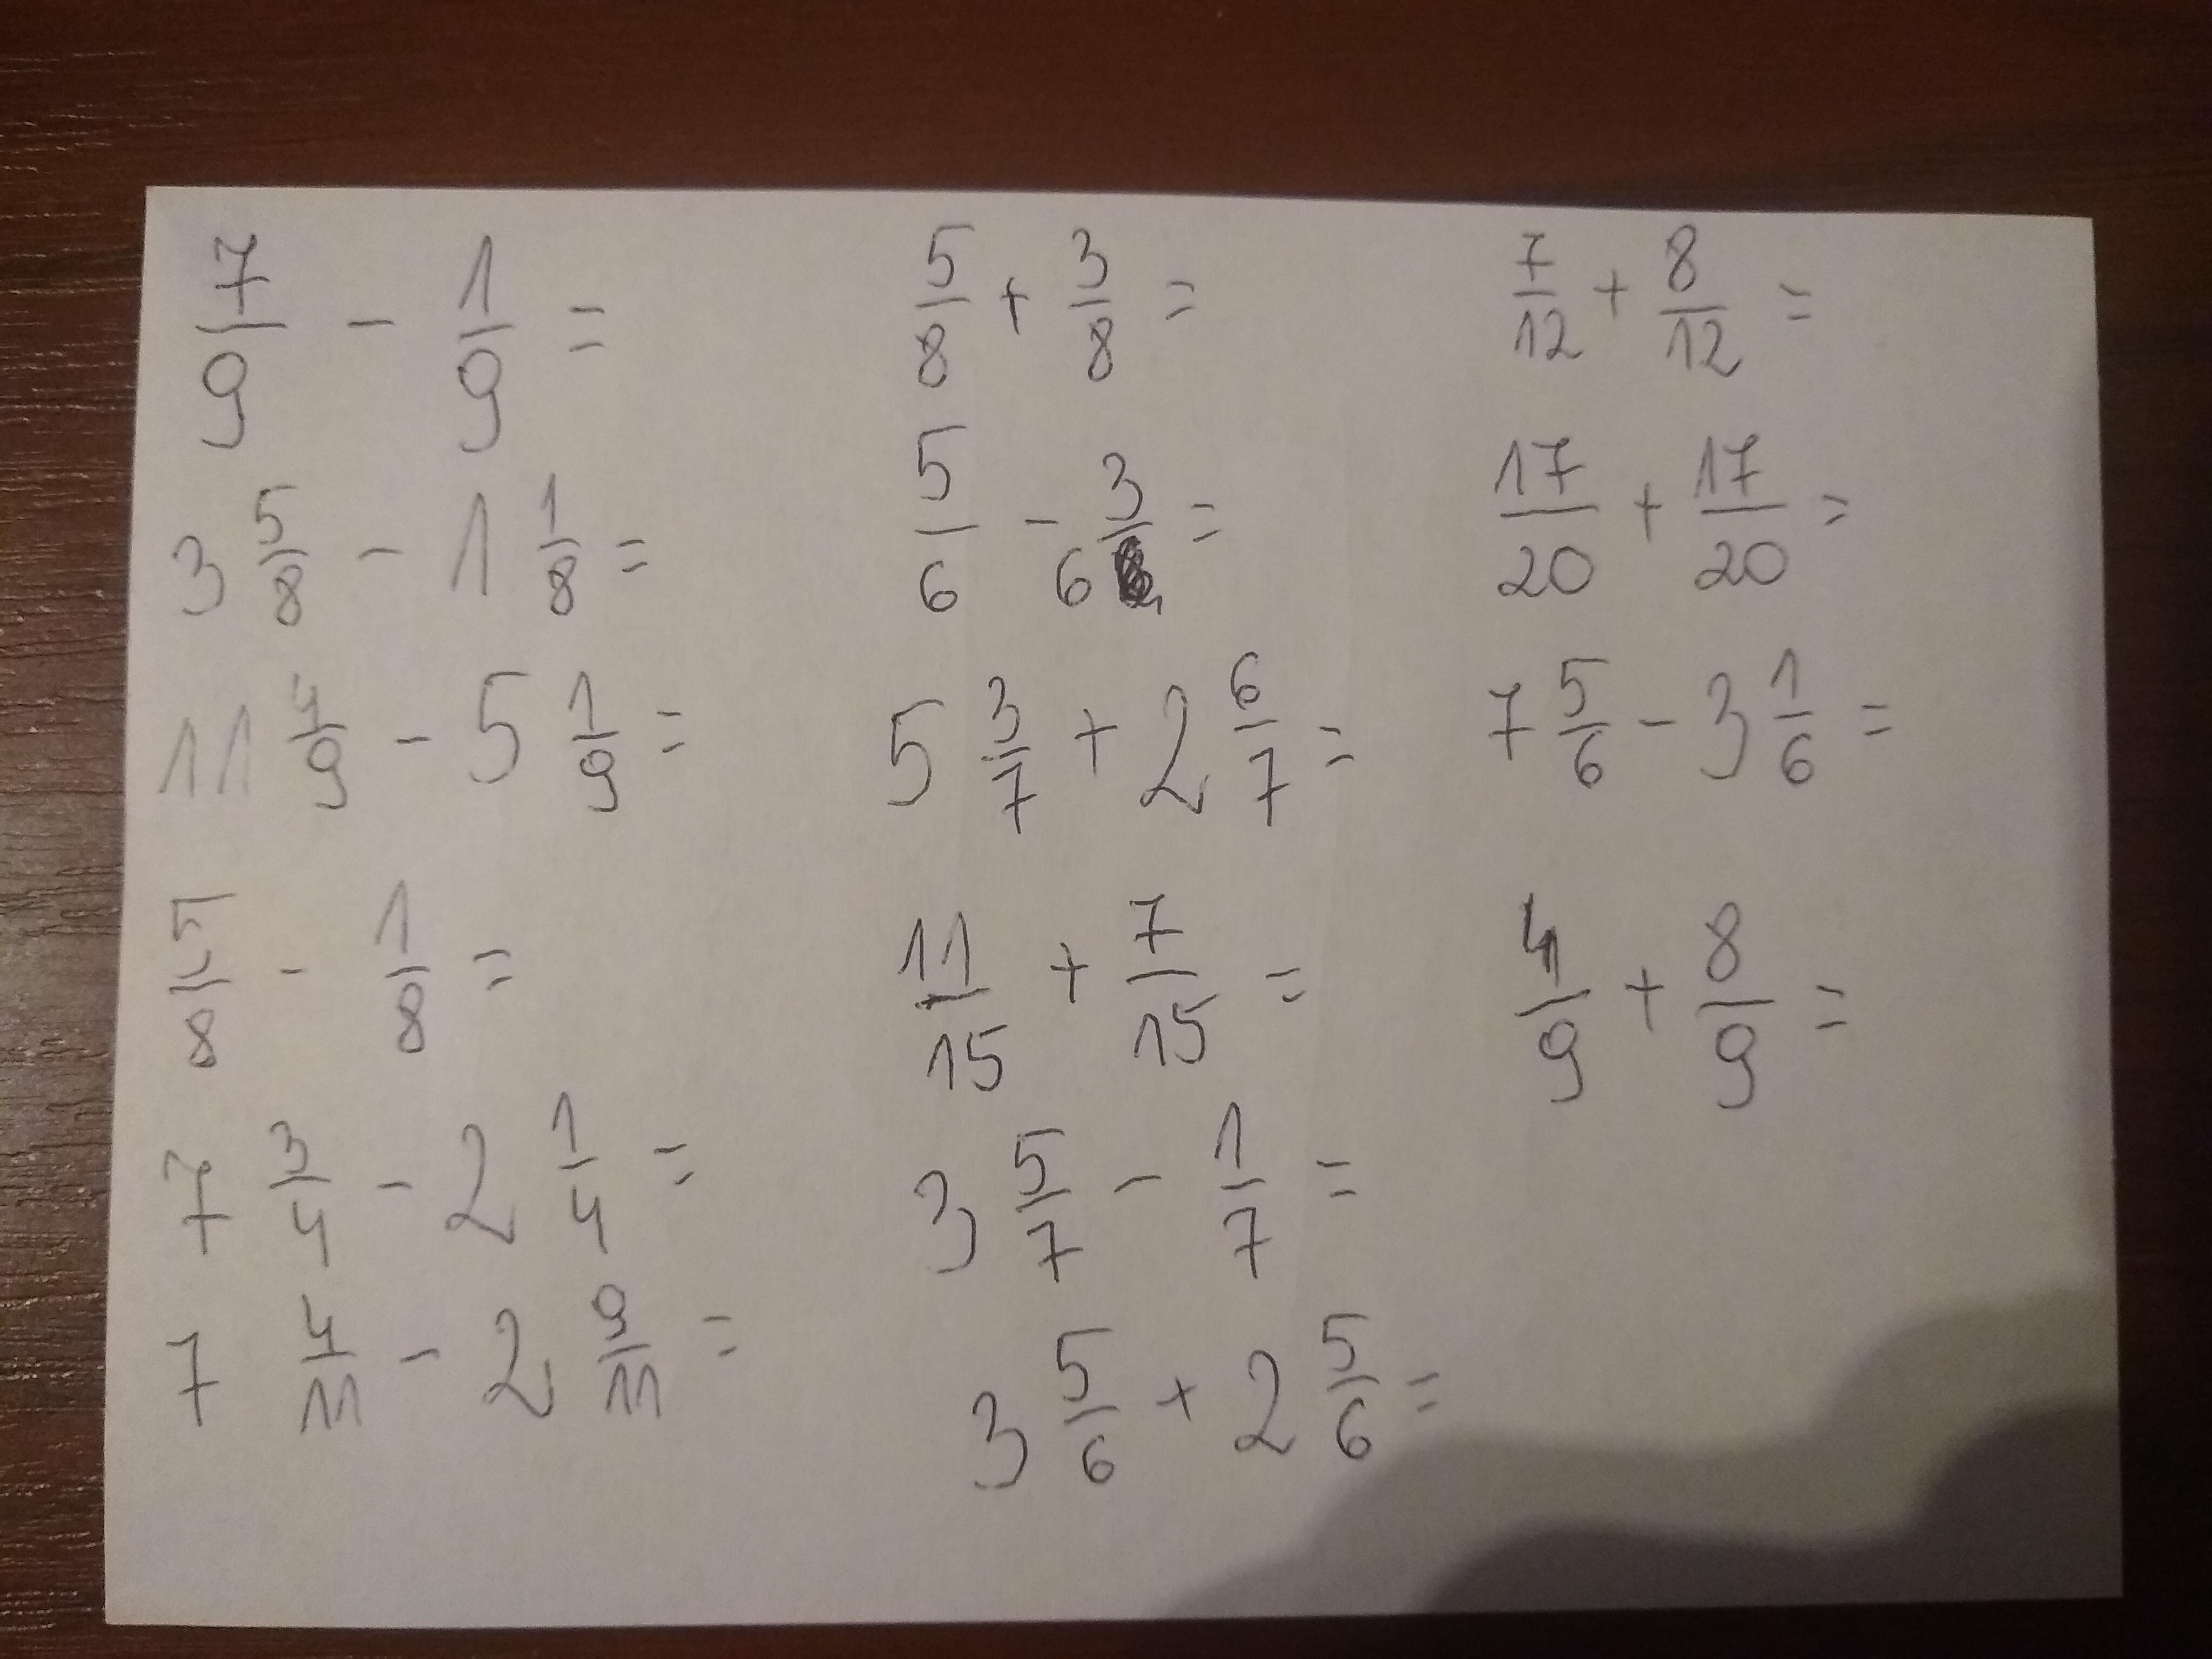 7/9 - 1/9 =
3 5/8 - 1 1/8 =
11 4/9 - 5 1/9 =
5/8 - 1/8 =
7 3/4 - 2 1/4 =
7 4/11 - 2 9/11 =
5/8 + 3/8 =
5/6 - 3/6 =
5 3/7 + 2 6/7 =
11/15 + 7/15 =
3 5/7 - 1/7 =
3 5/6 + 2 5/6 =
7/12 + 8/12 =
17/20 + 17/20 =
7 5/6 - 3 1/6 =
4/9 + 8/9 =